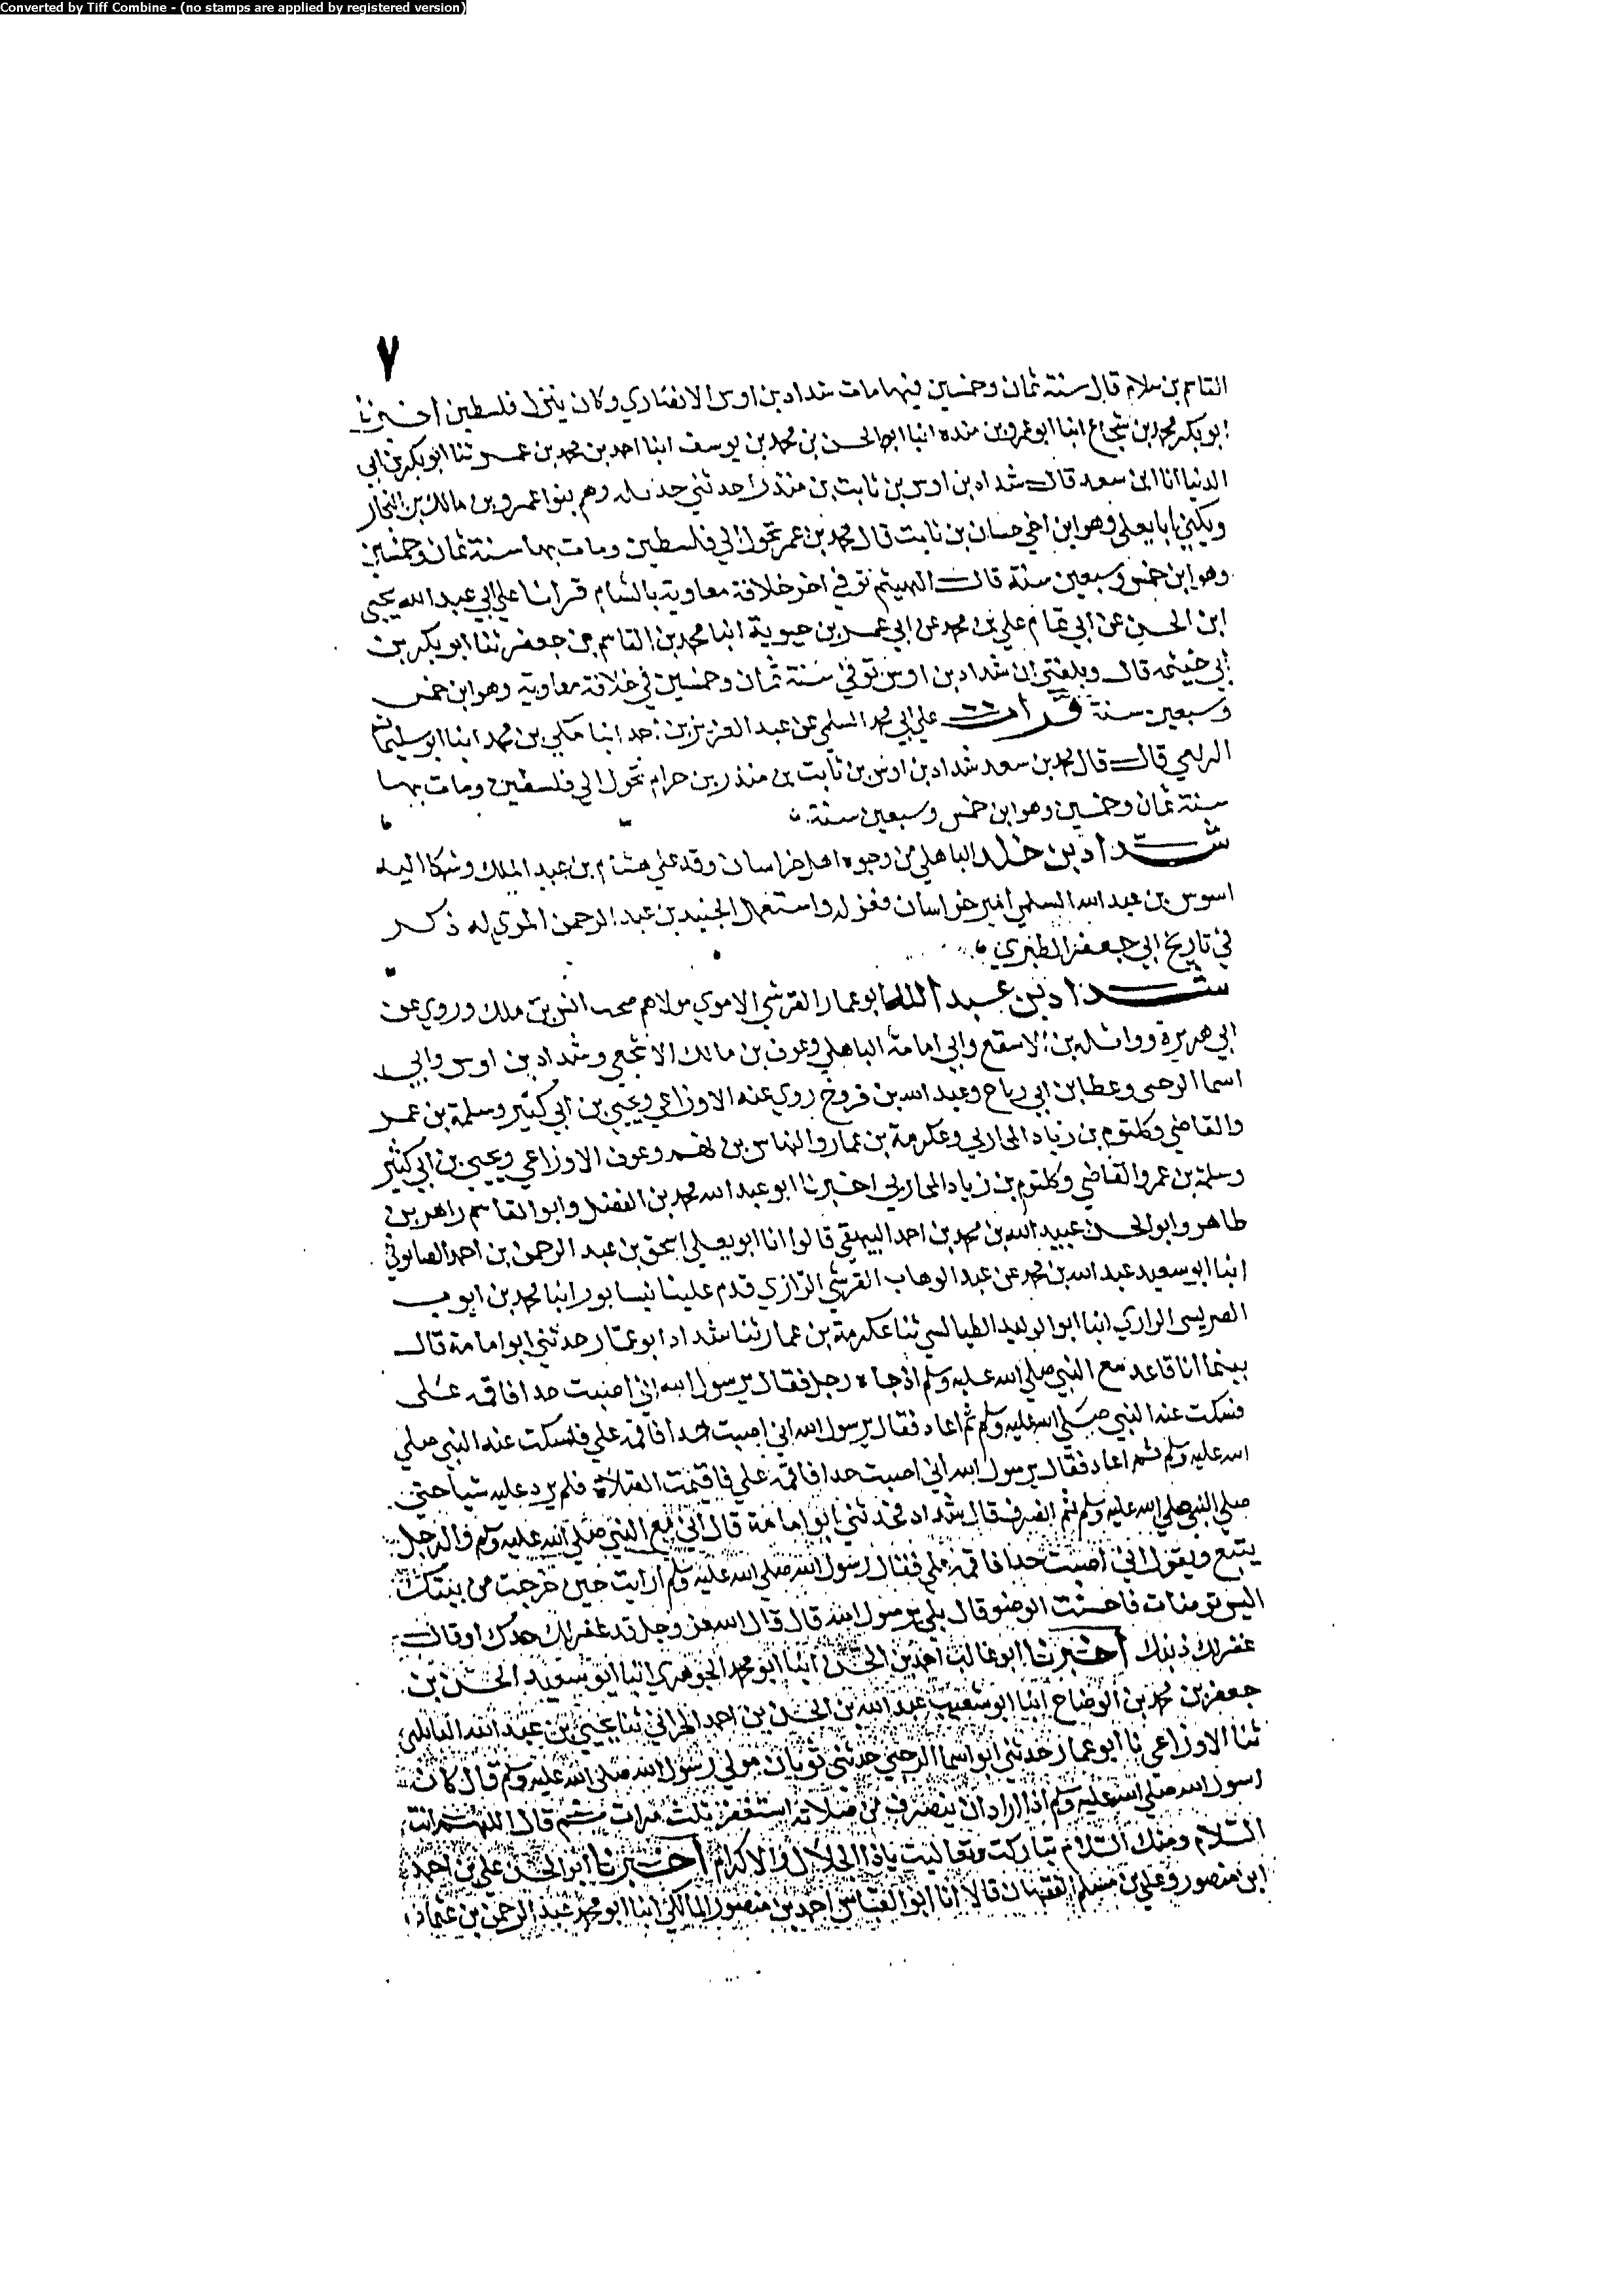 Converted by Tiff Combine - (no stamps are applied by registered version)
٧
القاسم بن سلام قال سنة ثمان وخمسين فيها مات شداد بن اوس الانصاري وكان ينزل فلسطين اخبرنا
ابو بكر محمد بن شجاع انبا ابو عمرو بن منده انبا ابو الحسن بن محمد بن يوسف ابنا احمد بن محمد بن عمر ثنا ابو بكر بن ابي
الدنيا انا ابن سعد قال شداد بن اوس بن ثابت بن منذر احد ثني وهم بنوا عمرو بن مالك بن النجار
ويكني ابا يعلي وهو ابن اخي حسان بن ثابت قال محمد بن عمر تحول الي فلسطين ومات بها سنة ثمان وخمسين
وهو ابن خمس وسبعين سنة قال الهيثم توفي اخر خلافة معاوية بالشام قرانا علي ابي عبد الله يحيي
ابن الحسن عن ابي تمام علي بن محمد عن ابي عمر بن حيوية انبا محمد بن القاسم بن جعفر ثنا ابو بكر بن
ابي خيثمه قال وبلغني ان شداد بن اوس توفي سنة ثمان وخمسين في خلافة معاوية وهو ابن خمس
وسبعين سنة قرات علي ابي محمد السلمي عن عبد العزيز بن احمد ابنا مكي بن محمد ابنا ابو سليمان
الربعي قال قال محمد بن سعد شداد بن اوس بن ثابت بن منذر بن حرام تحول الي فلسطين ومات بها
سنة ثمان وخمسين وهو ابن خمس وسبعين سنة
شداد بن خلد الباهلي من وجوه اهل خراسان وفد علي هشام بن عبد الملك وشكا اليه
اسوس بن عبد الله السلمي امير خراسان فعزله واستعمل الجنيد بن عبد الرحمن المري له ذكر
في تاريخ ابي جعفر الطبري
شداد بن عبد الله ابو عمار القرشي الاموي مولاهم صحب انس بن ملك وروي عن
ابي هريرة وواثله بن الاسقع وابي امامة الباهلي وعوف بن مالك الاشجعي وشداد بن اوس وابي
اسما الرحبي وعطا بن ابي رباح وعبد الله بن فروخ روي عنه الاوزاعي ويحيي بن ابي كثير وسلمة بن عمر
والقاضي وكلثوم بن زياد المحاربي وعكرمة بن عمار والنهاس بن فهم وعوف الاوزاعي ويحيي بن ابي كثير
وسلمة بن عمرو القاضي وكلثوم بن زياد المحاربي اخبرنا ابو عبد الله محمد بن الفضل وابو القاسم زاهر بن
طاهر وابو الحسن عبيد الله بن محمد بن احمد البيهقي قالوا انا ابو يعلي اسحق بن عبد الرحمن بن احمد الصابوني
ابنا ابو سعيد عبد الله بن محمد عن عبد الوهاب القرشي الرازي قدم علينا نيسابور ابنا محمد بن ايوب
الضريس الرازي ابنا ابو الوليد الطيالسي ثنا عكرمة بن عمار ثنا شداد ابو عمار حدثني ابو امامة قال
بينما انا قاعد مع النبي صلي الله عليه وسلم اذ جاه رجل فقال يرسول الله اني اصبت حدا فاقمه علي
فسكت عنه النبي صلي الله عليه وسلم ثم اعاد فقال يرسول الله اني اصبت حدا فاقمه علي فسكت عنه النبي صلي
الله عليه وسلم ثم اعاد فقال يرسول الله اني اصبت حدا فاقمه علي فاقيمت الصلاة فلم يرد عليه شيا حتي
صلي النبي صلي الله عليه وسلم ثم انصرف قال شداد فحدثني ابو امامة قال اني مع النبي صلي الله عليه وسلم والرجل
يتبع ويقول اني اصبت حدا فاقمه علي فقال رسول الله صلي الله عليه وسلم ارايت حين خرجت من بيتك
اليس توضات فاحسنت الوضو قال بلي يرسول الله قال قال الله عز وجل قد غفر لك حدك او قال
غفر لك ذنبك اخبرنا ابو غالب احمد بن الحسن انبا ابو محمد الجوهري انبا ابو سعيد الحسن بن
جعفر بن محمد بن الوضاح انبا ابو شعيب عبد الله بن الحسن بن احمد الحراني ثنا يحيي بن عبد الله البابلتي
ثنا الاوزاعي نا ابو عمار حدثني ابو اسما الرحبي حدثني ثوبان مولي رسول الله صلي الله عليه وسلم قال كان
رسول الله صلي الله عليه وسلم اذا اراد ان ينصرف من صلاته استغفر ثلث مرات ثم قال اللهم انت
السلام ومنك السلام تباركت وتعاليت ياذا الجلال والاكرام اخبرنا ابو الحسن علي بن احمد
ابن منصور وعلي بن مسلم الفقهان قالا انا ابو العباس احمد بن منصور المالكي انبا ابو محمد عبد الرحمن بن عثمان